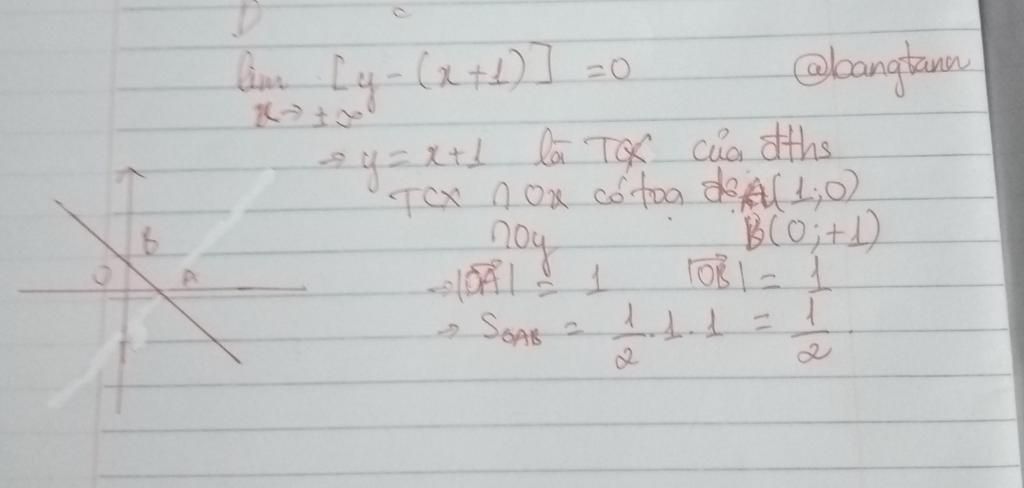 lim [y - (x+1)] = 0 @bangtann
x → ±∞
→ y = x+1 là TCX của đths
TCX ∩ Ox có toạ độ A(1;0)
∩Oy B(0;+1)
→ |OA| = 1 |OB| = 1
→ S OAB = 1/2 . 1 . 1 = 1/2
B
O A